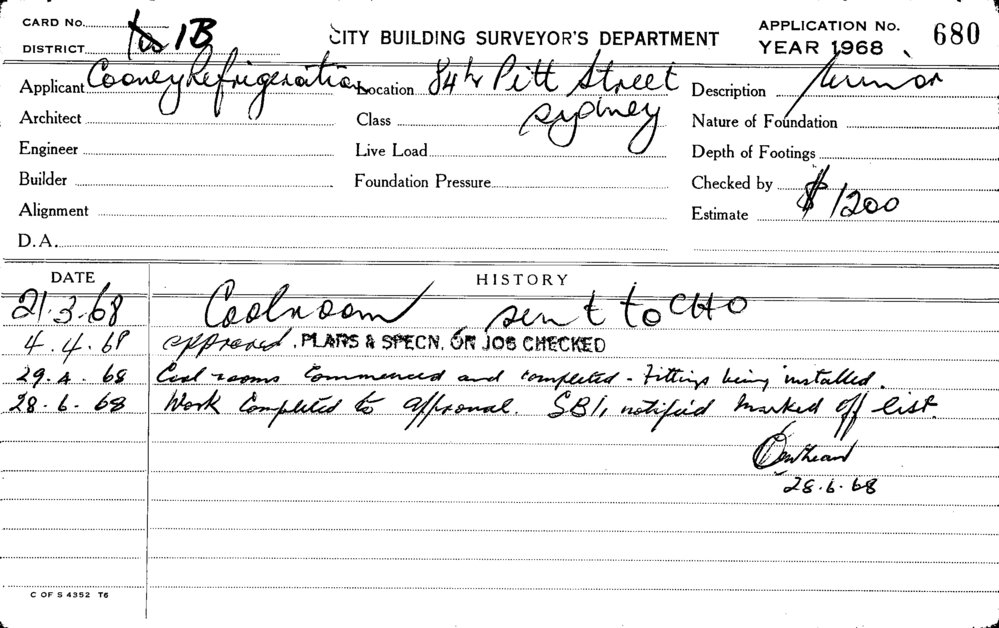 CARD No.
DISTRICT 1B
CITY BUILDING SURVEYOR'S DEPARTMENT
APPLICATION No. 680
YEAR 1968
Applicant Cooney Refrigeration Location Pitt Street Description Minor
Architect Class Sydney Nature of Foundation
Engineer Live Load Depth of Footings
Builder Foundation Pressure Checked by
Alignment Estimate $1200
D.A.
DATE HISTORY
21.3.68 Coolroom sent to CHO
4.4.68 approved. PLANS & SPECN. ON JOB CHECKED
29.4.68 Cool rooms commenced and completed - Fittings being installed.
28.6.68 Work Completed to approval. SBI, notified marked off list.
28.6.68
C OF S 4352 T6